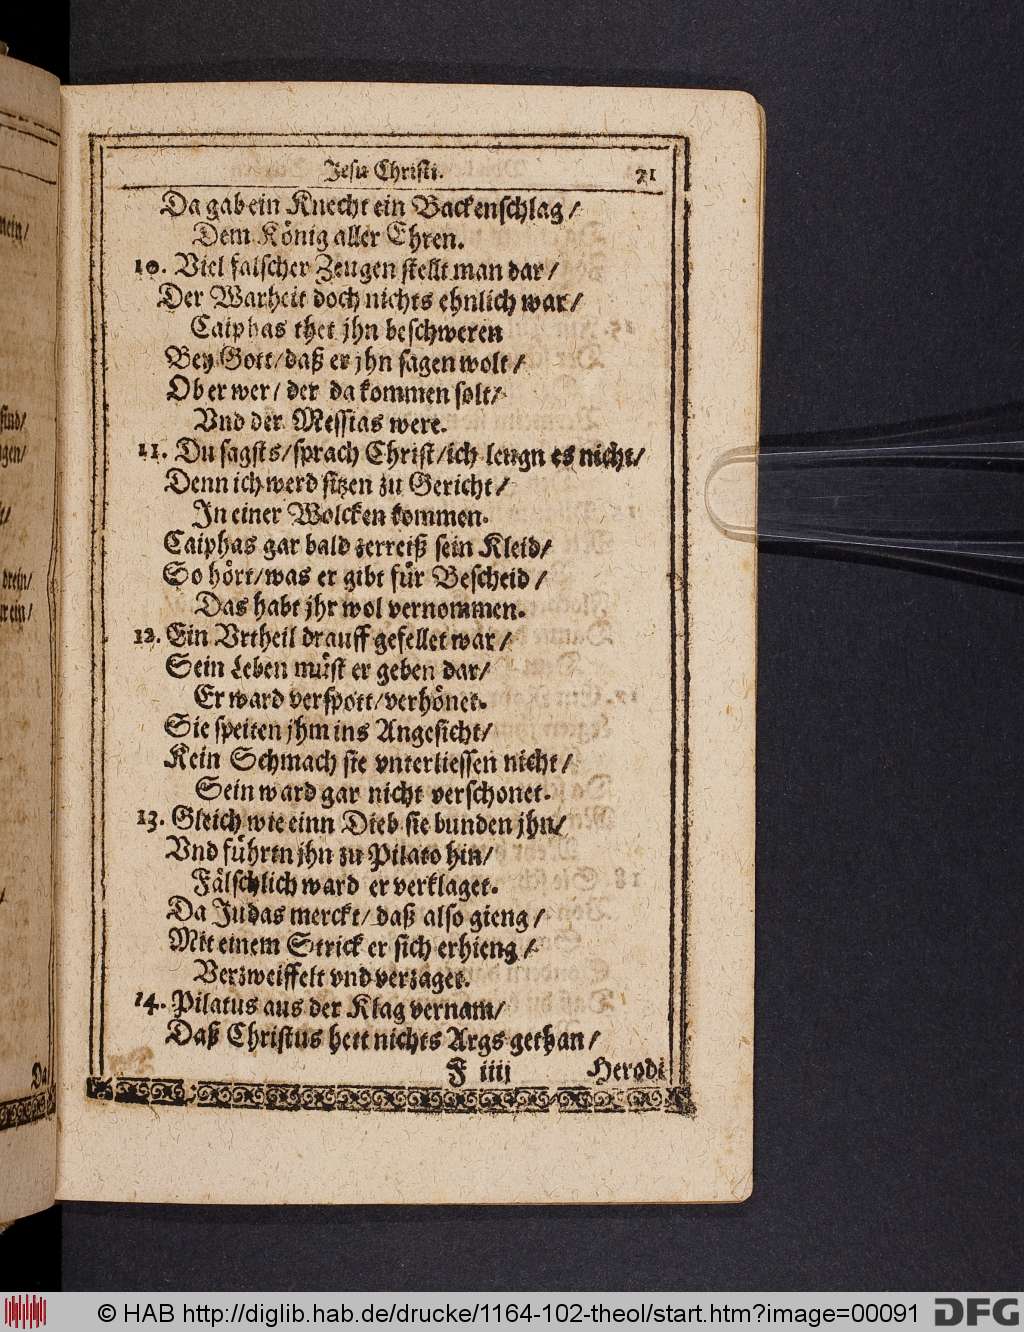 Jesu Christi. 71
Da gab ein Knecht ein Backenschlag/
Dem König aller Ehren.
10. Viel falscher Zeugen stellt man dar/
Der Warheit doch nichts ehnlich war/
Caiphas thet jhn beschweren
Bey Gott/daß er jhn sagen wolt/
Ob er wer/ der da kommen solt/
Vnd der Messias were.
11. Du sagsts/sprach Christ/ich leugn es nicht/
Denn ich werd sitzen zu Gericht/
In einer Wolcken kommen.
Caiphas gar bald zerreiß sein Kleid/
So hört/was er gibt für Bescheid/
Das habt jhr wol vernommen.
12. Ein Vrtheil drauff gefellet war/
Sein Leben müst er geben dar/
Er ward verspott/verhönet.
Sie speiten jhm ins Angesicht/
Kein Schmach sie vnterliessen nicht/
Sein ward gar nicht verschonet.
13. Gleich wie einn Dieb sie bunden jhn/
Vnd führtn jhn zu Pilato hin/
Fälschlich ward er verklaget.
Da Judas merckt/ daß also gieng/
Mit einem Strick er sich erhieng/
Verzweiffelt vnd verzaget.
14. Pilatus aus der Klag vernam/
Daß Christus hett nichts Args gethan/
F iiij Herodi
mein/
sind/
drein/
Da
© HAB http://diglib.hab.de/drucke/1164-102-theol/start.htm?image=00091 DFG